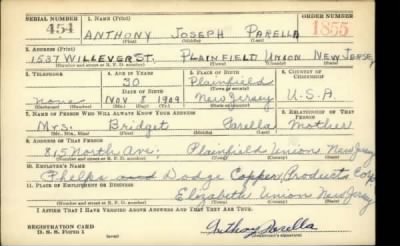 SERIAL NUMBER 1. NAME (Print) ORDER NUMBER
454 ANTHONY JOSEPH PARELLA 1855
(First) (Middle) (Last)
2. ADDRESS (Print)
1537 WILLEVER ST. PLAINFIELD UNION NEW JERSEY
(Number and street or R. F. D. number) (Town) (County) (State)
3. TELEPHONE 4. AGE IN YEARS 5. PLACE OF BIRTH 6. COUNTRY OF CITIZENSHIP
30 Plainfield
DATE OF BIRTH (Town or county)
None NOV 1909 New Jersey U.S.A.
(Mo.) (Day) (Yr.) (State or country)
7. NAME OF PERSON WHO WILL ALWAYS KNOW YOUR ADDRESS 8. RELATIONSHIP OF THAT PERSON
Mrs. Bridget Parella Mother
(Mr., Mrs., Miss) (First) (Middle) (Last)
9. ADDRESS OF THAT PERSON
815 North Ave. Plainfield Union New Jersey
(Number and street or R. F. D. number) (Town) (County) (State)
10. EMPLOYER'S NAME
Phelps Dodge Copper Products Corp.
11. PLACE OF EMPLOYMENT OR BUSINESS
Elizabeth Union New Jersey
(Number and street or R. F. D. number) (Town) (County) (State)
I AFFIRM THAT I HAVE VERIFIED ABOVE ANSWERS AND THAT THEY ARE TRUE.
REGISTRATION CARD Anthony Parella
D. S. S. Form 1 (Registrant's signature)